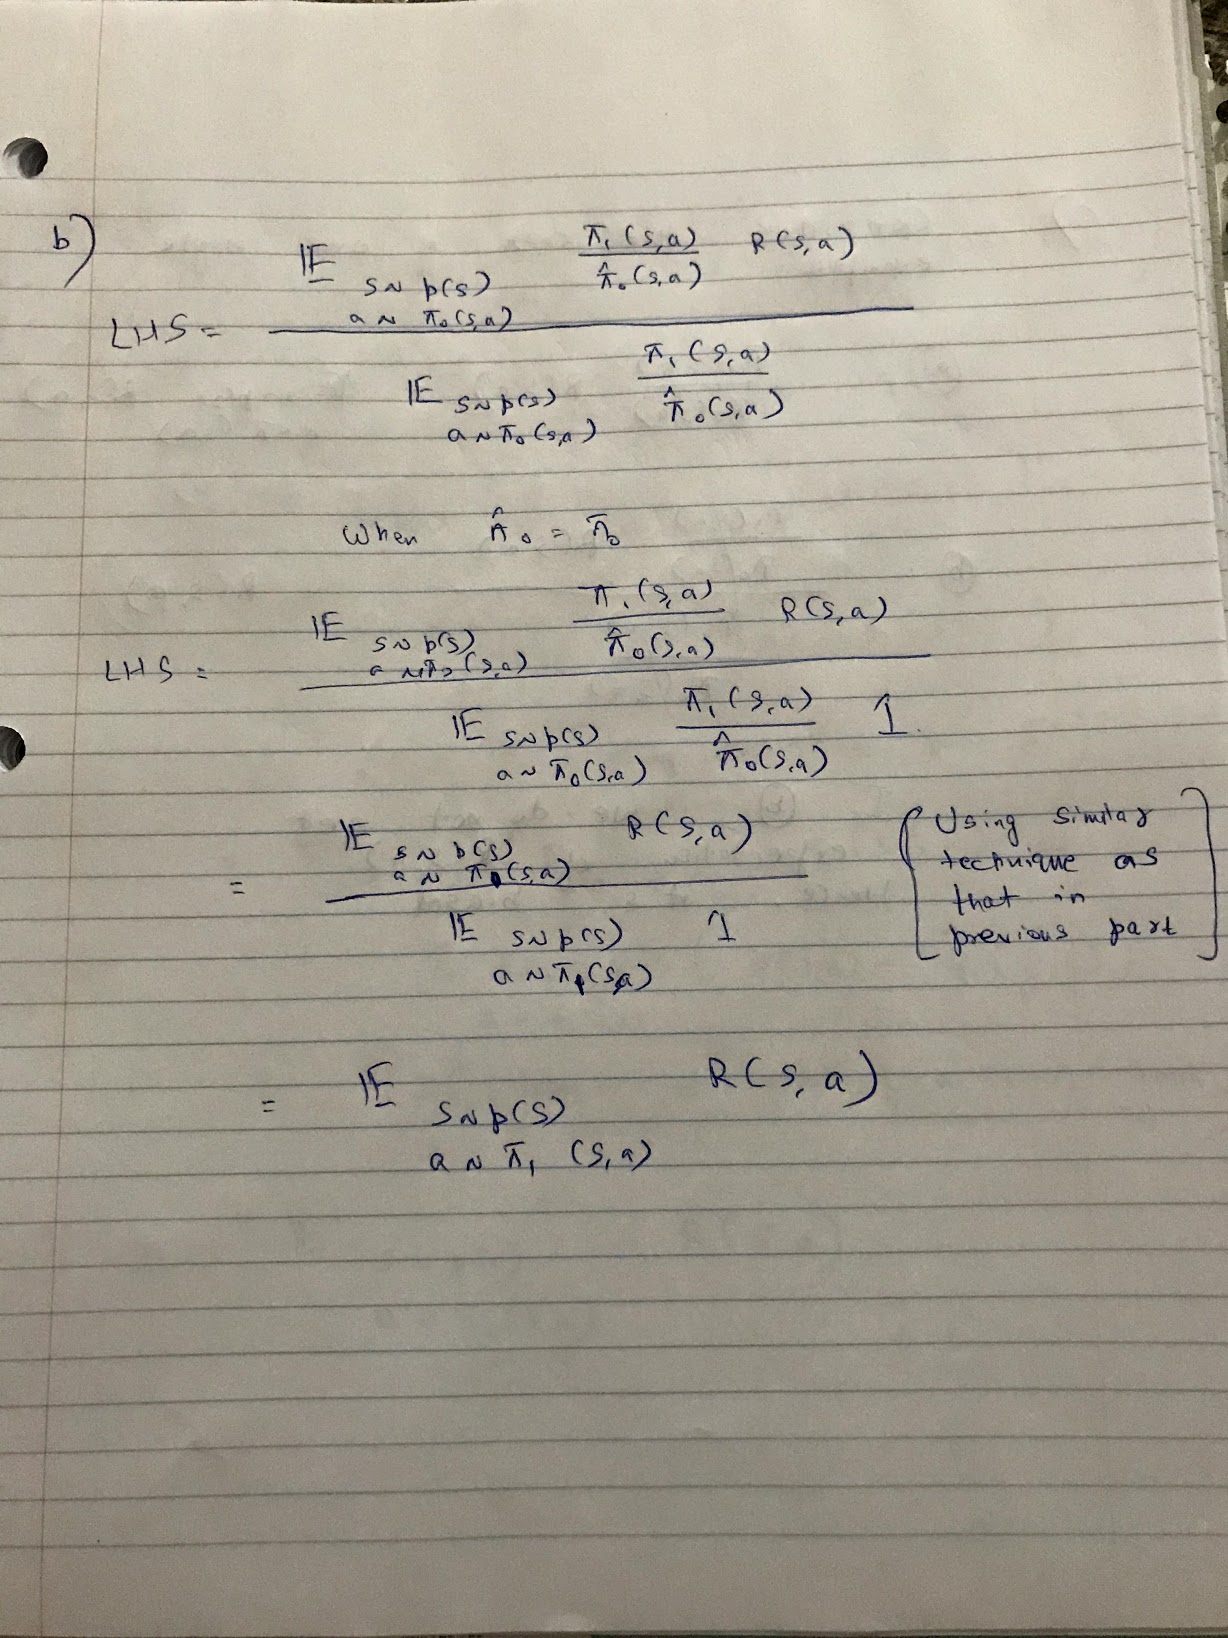 b)
LHS = 𝔼 s~p(s) a~π₀(s,a) π₁(s,a) / π̂₀(s,a) R(s,a)
𝔼 s~p(s) a~π₀(s,a) π₁(s,a) / π̂₀(s,a)
When π̂₀ = π₀
LHS = 𝔼 s~p(s) a~π₀(s,a) π₁(s,a) / π̂₀(s,a) R(s,a)
𝔼 s~p(s) a~π₀(s,a) π₁(s,a) / π̂₀(s,a) 1.
= 𝔼 s~p(s) a~π₁(s,a) R(s,a)
𝔼 s~p(s) a~π₁(s,a) 1
[Using similar
technique as
that in
previous part]
= 𝔼 s~p(s) a~π₁(s,a) R(s,a)